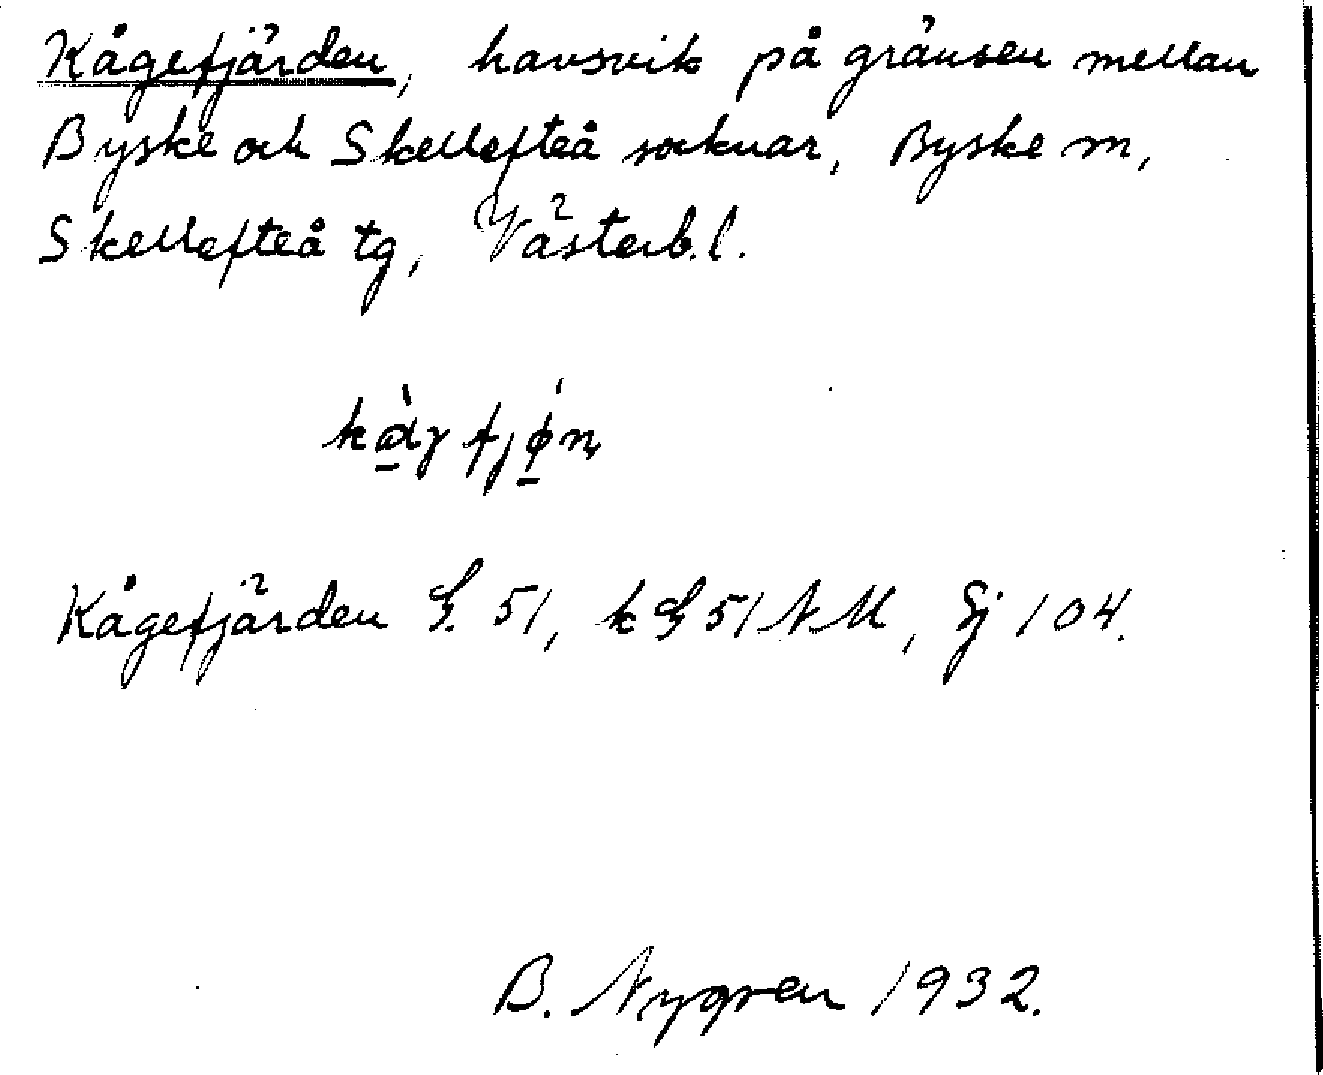 Kågefjärden, havsvik på gränsen mellan
Byske och Skellefteå socknar, Byske m,
Skellefteå tg, Västerb.l.
Kågefjärden G. 51, k G 51 NM, Sj 104.
B. Nygren 1932.